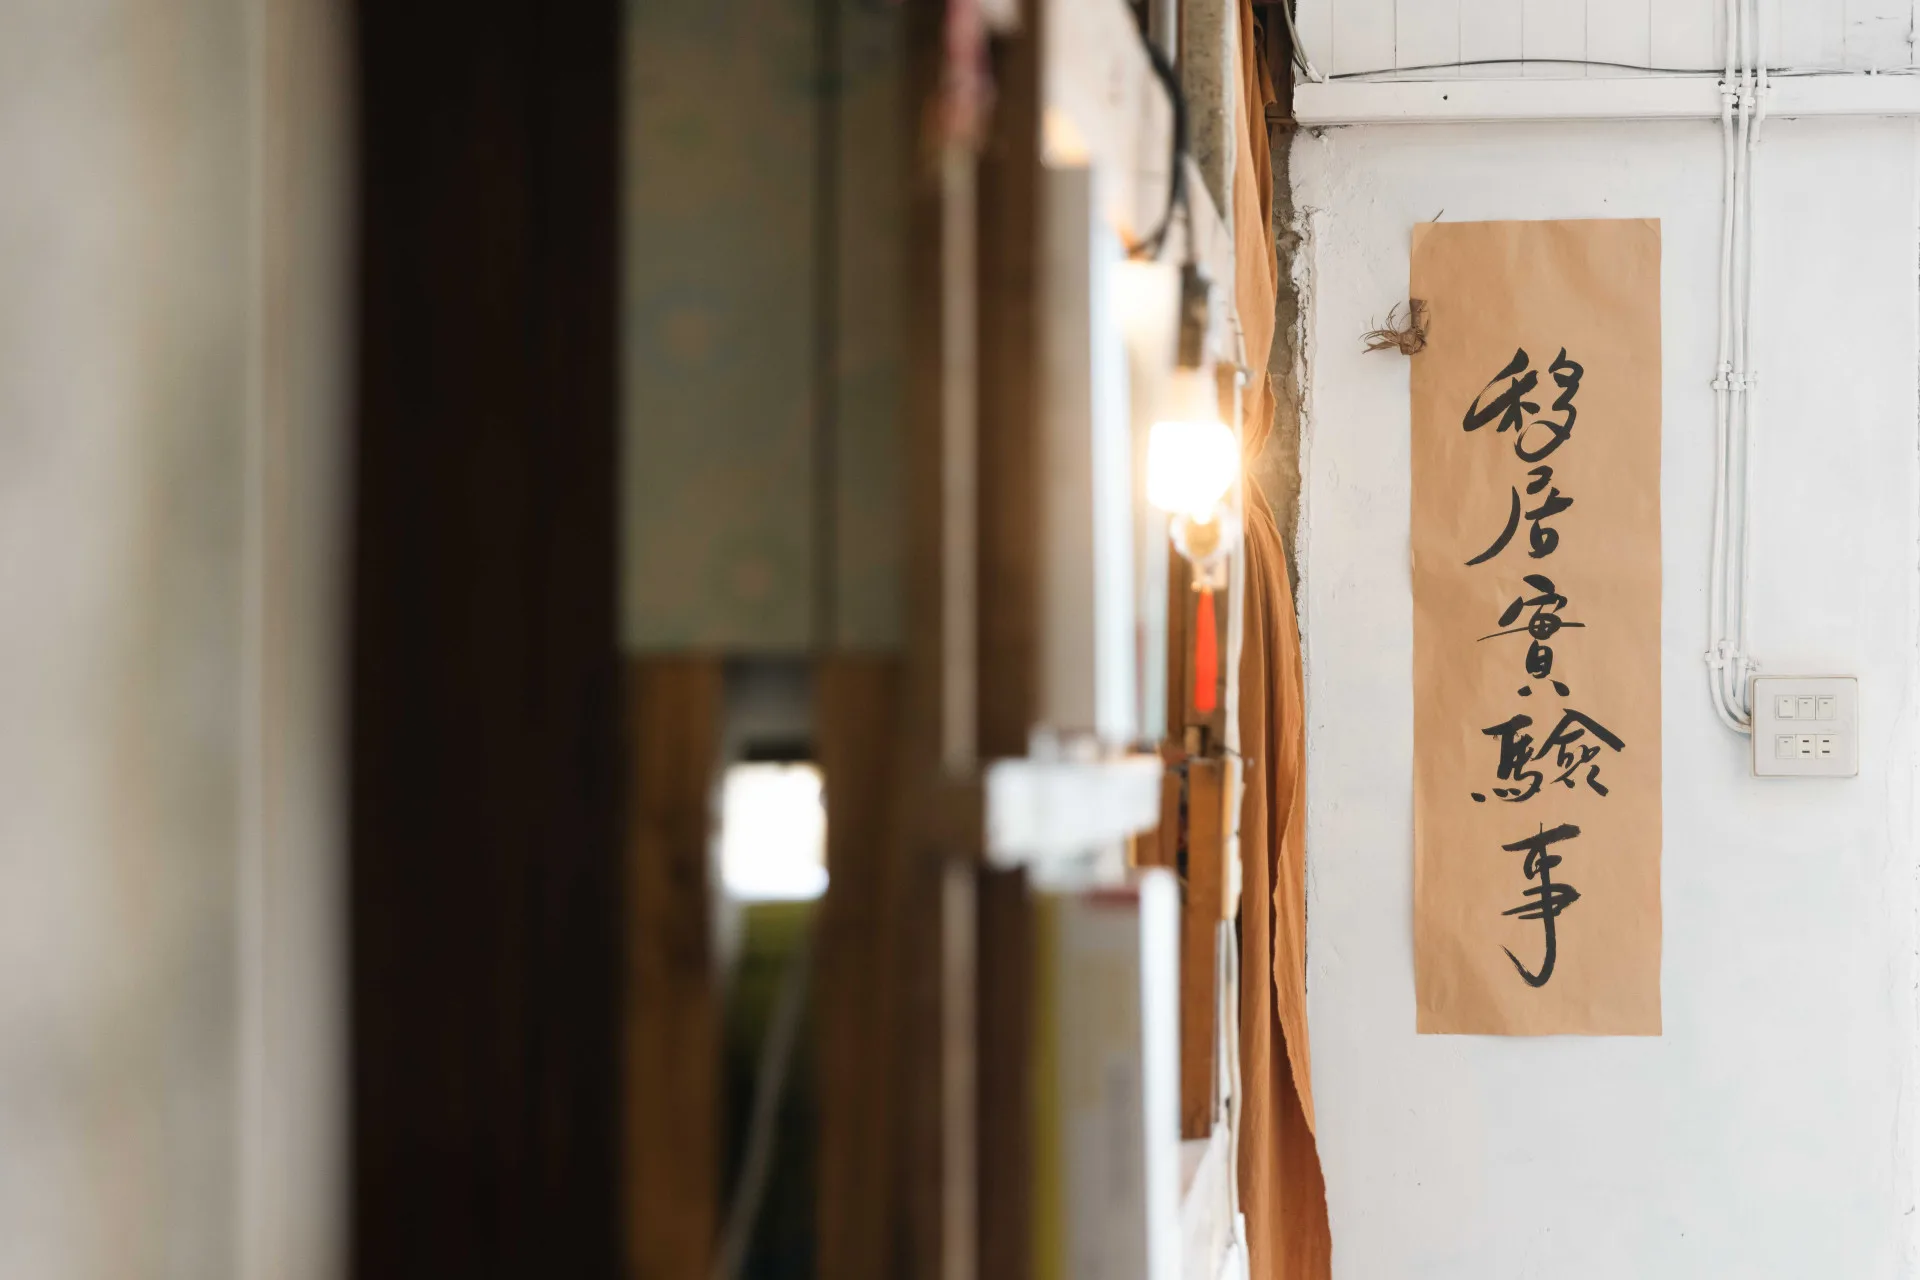 移居實驗事